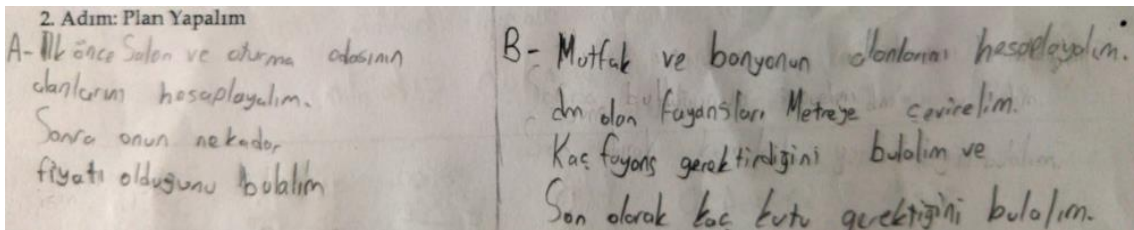 2. Adım: Plan Yapalım
A- İlk önce Salon ve oturma odasının
alanlarını hesaplayalım.
Sonra onun nekadar
fiyatı olduğunu bulalım
B- Mutfak ve banyonun alanlarını hesaplayalım.
dm olan fayansları Metreye çevirelim.
Kaç fayans gerektirdiğini bulalım ve
Son olarak kaç kutu gerektiğini bulalım.